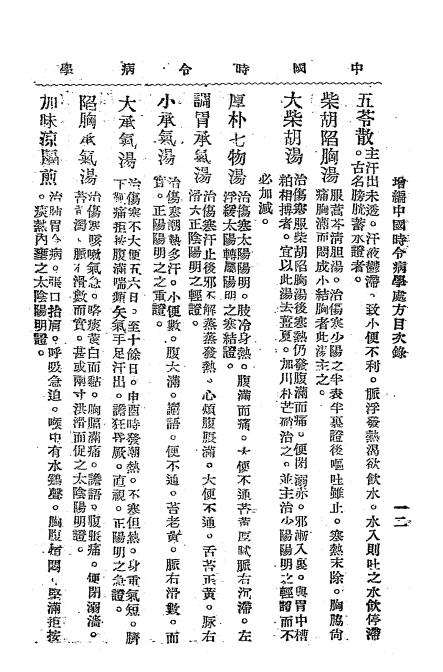 中國時令病學
增編中國時令病學處方目次錄
一二
五苓散 主汗出未透。汗液鬱滯。致小便不利。脈浮發熱渴欲飲水。水入則吐之水飲停滯
。古名膀胱蓄水證者。
柴胡陷胸湯 服蒿芩清胆湯。治傷寒少陽之半表半裏證後嘔吐雖止。寒熱未除。胸脇向
痛胸滿而悶成小結胸者此湯主之。
大柴胡湯 治傷寒服柴胡陷胸湯後寒熱仍發腹滿而痛。便閉溺赤。邪漸入裏。與胃中糟
粕相搏者。宜以此湯去薑夏。加川朴芒硝治之。並主治少陽陽明之輕證而不
必加減。
厚朴七物湯 治傷寒太陽陽明。肢冷身熱。腹滿而痛。大便不通苔黃厚膩脈右沉滯。左
浮緩太陽轉屬陽明之寒結證。
調胃承氣湯 治傷寒汗止後邪不解蒸蒸發熱。心煩腹脹滿。大便不通。舌苔正黃。脈右
滑大正陽陽明之輕證。
小承氣湯 治傷寒潮熱多汗。小便數。腹大滿。譫語。便不通。苔老黃。脈右滑數。而
實。正陽陽明之重證。
大承氣湯 治傷寒不大便五六日。至十餘日。申酉時發潮熱。不寒但熱。身重氣短。臍
下硬痛拒按腹滿喘頻矢氣手足汗出。譫狂昏厥。直視。正陽陽明之急證。
陷胸承氣湯 治傷寒咳嗽氣急。咯痰黃白而黏。胸膈滿痛。譫語。腹脹痛。便閉溺濇。
苔黃濁。脈右滑數而實。甚或兩寸洪滑而促之太陰陽明證。
加味涼膈煎 治肺胃合病。張口抬肩。呼吸急迫。喉中有水鷄聲。胸腹痞悶。堅滿拒按
。痰熱內壅之太陰陽明證。